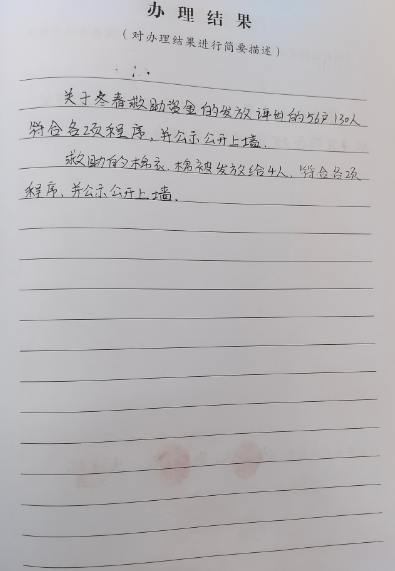 办理结果
(对办理结果进行简要描述)
关于冬春救助资金的发放评出的56户130人
符合各项程序,并公示公开上墙.
救助的棉衣.棉被发放给4人,符合各项
程序、并公示公开上墙.